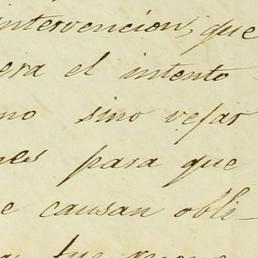 intervencion, que
era el intento
no sino vejar
nes para que
e causan obli-